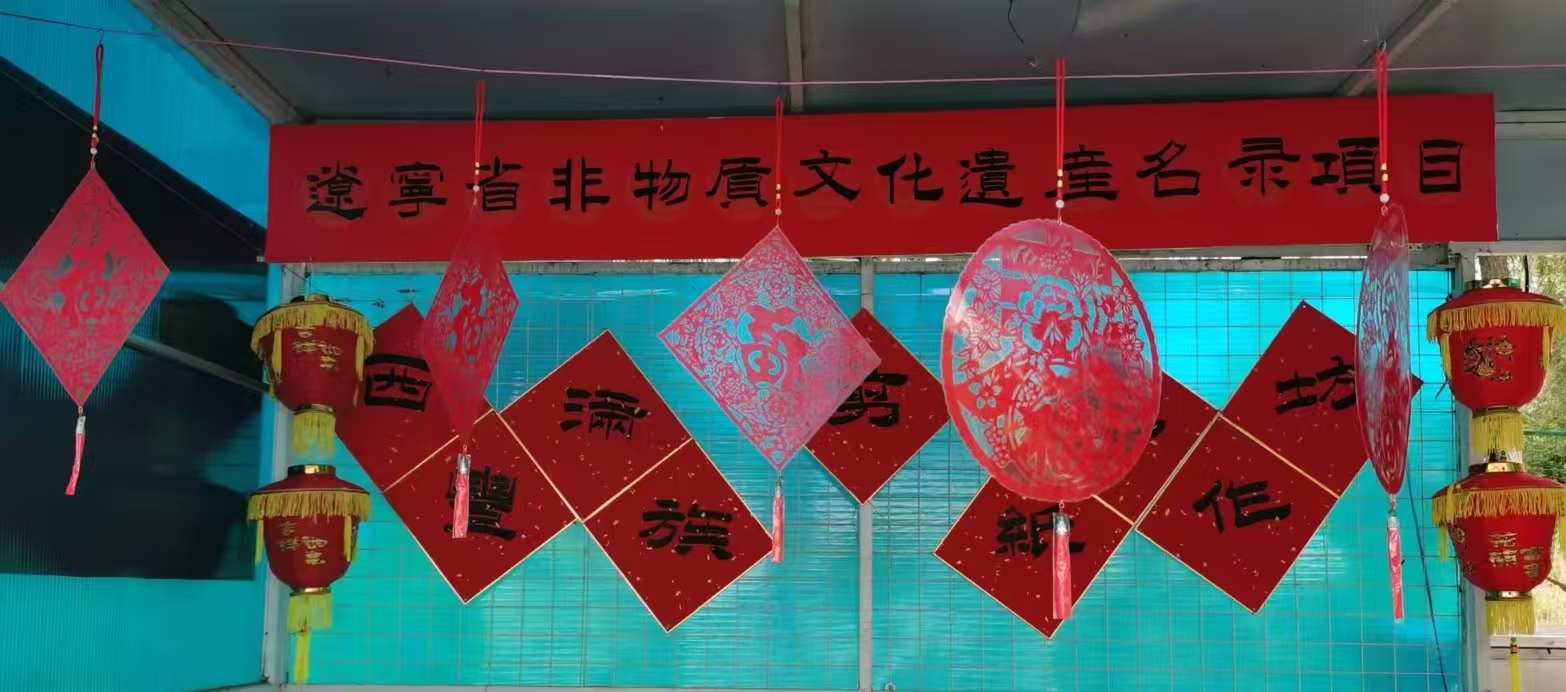 遼寧省非物质文化遺産名录項目
西豐满族剪紙作坊
福
福
福
吉祥如意
吉祥如意